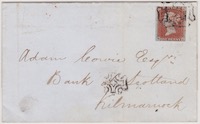 Adam Cowie Esqre
Bank of Scotland
Kilmarnock